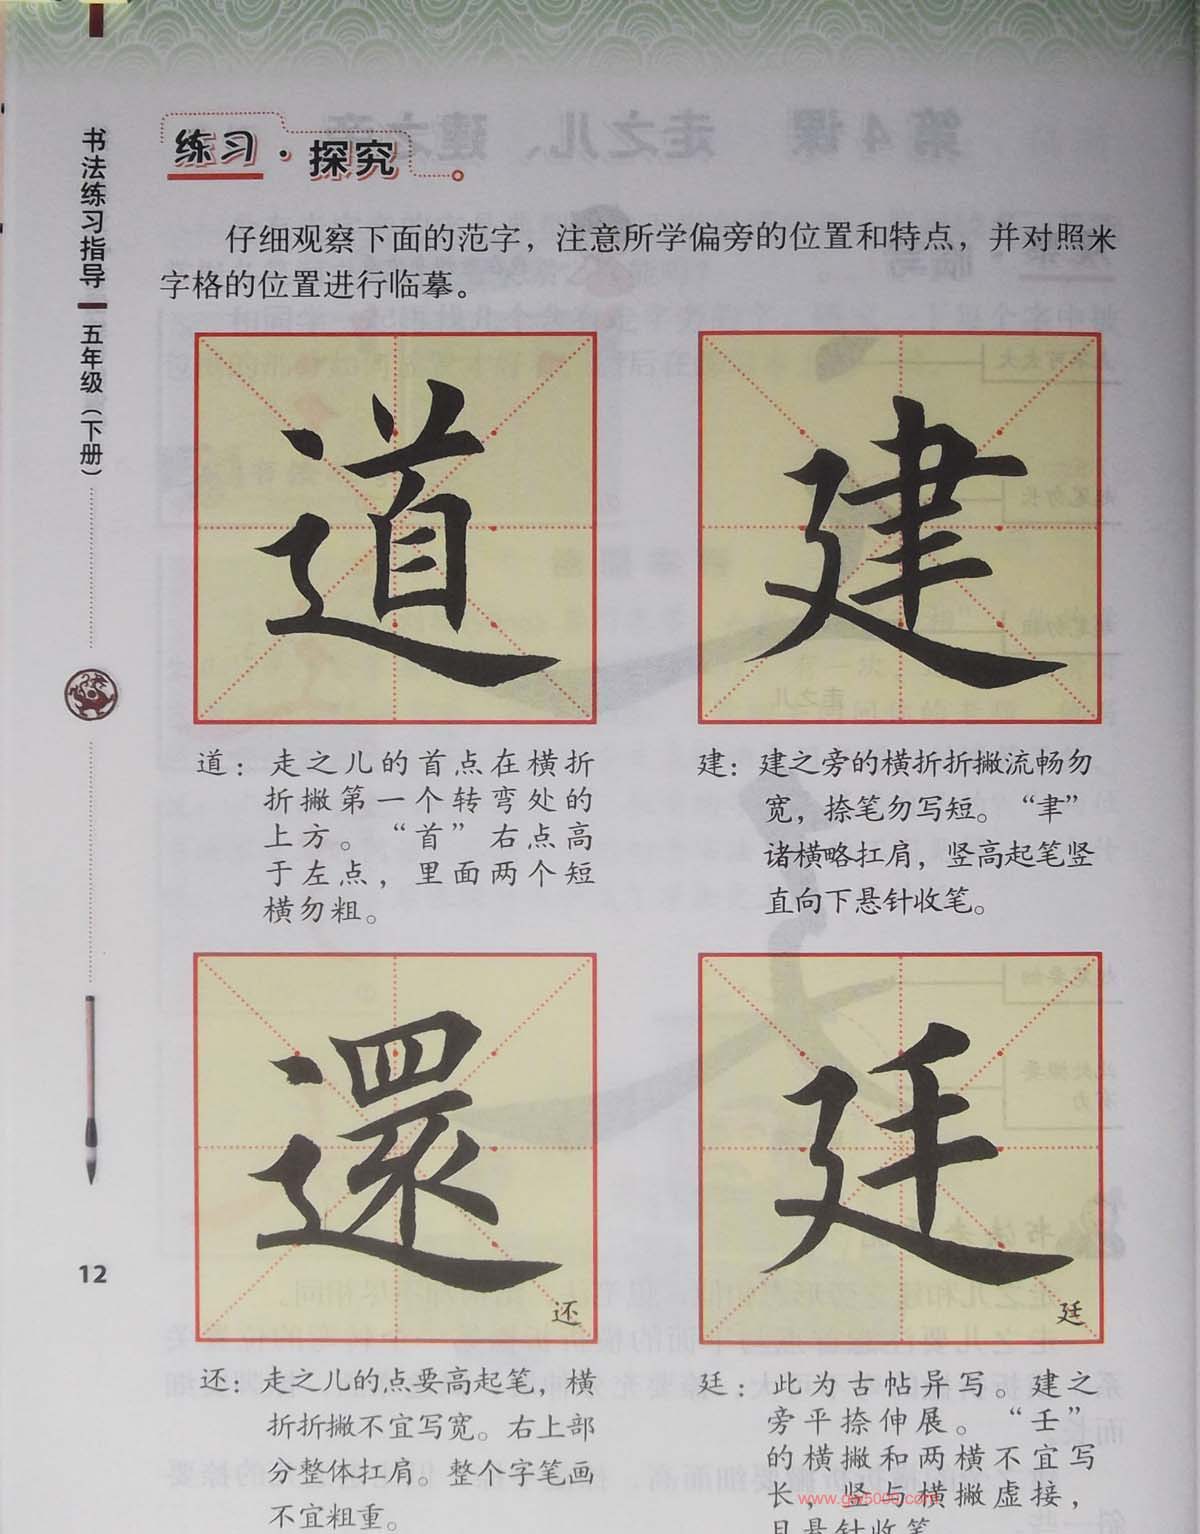 书法练习指导
五年级（下册）
12
练习·探究
仔细观察下面的范字，注意所学偏旁的位置和特点，并对照米
字格的位置进行临摹。
道
建
道：走之儿的首点在横折
折撇第一个转弯处的
上方。“首”右点高
于左点，里面两个短
横勿粗。
建：建之旁的横折折撇流畅勿
宽，捺笔勿写短。“聿”
诸横略扛肩，竖高起笔竖
直向下悬针收笔。
還
还
廷
廷
还：走之儿的点要高起笔，横
折折撇不宜写宽。右上部
分整体扛肩。整个字笔画
不宜粗重。
廷：此为古帖异写。建之
旁平捺伸展。“壬”
的横撇和两横不宜写
长，竖与横撇虚接，
且悬针收笔